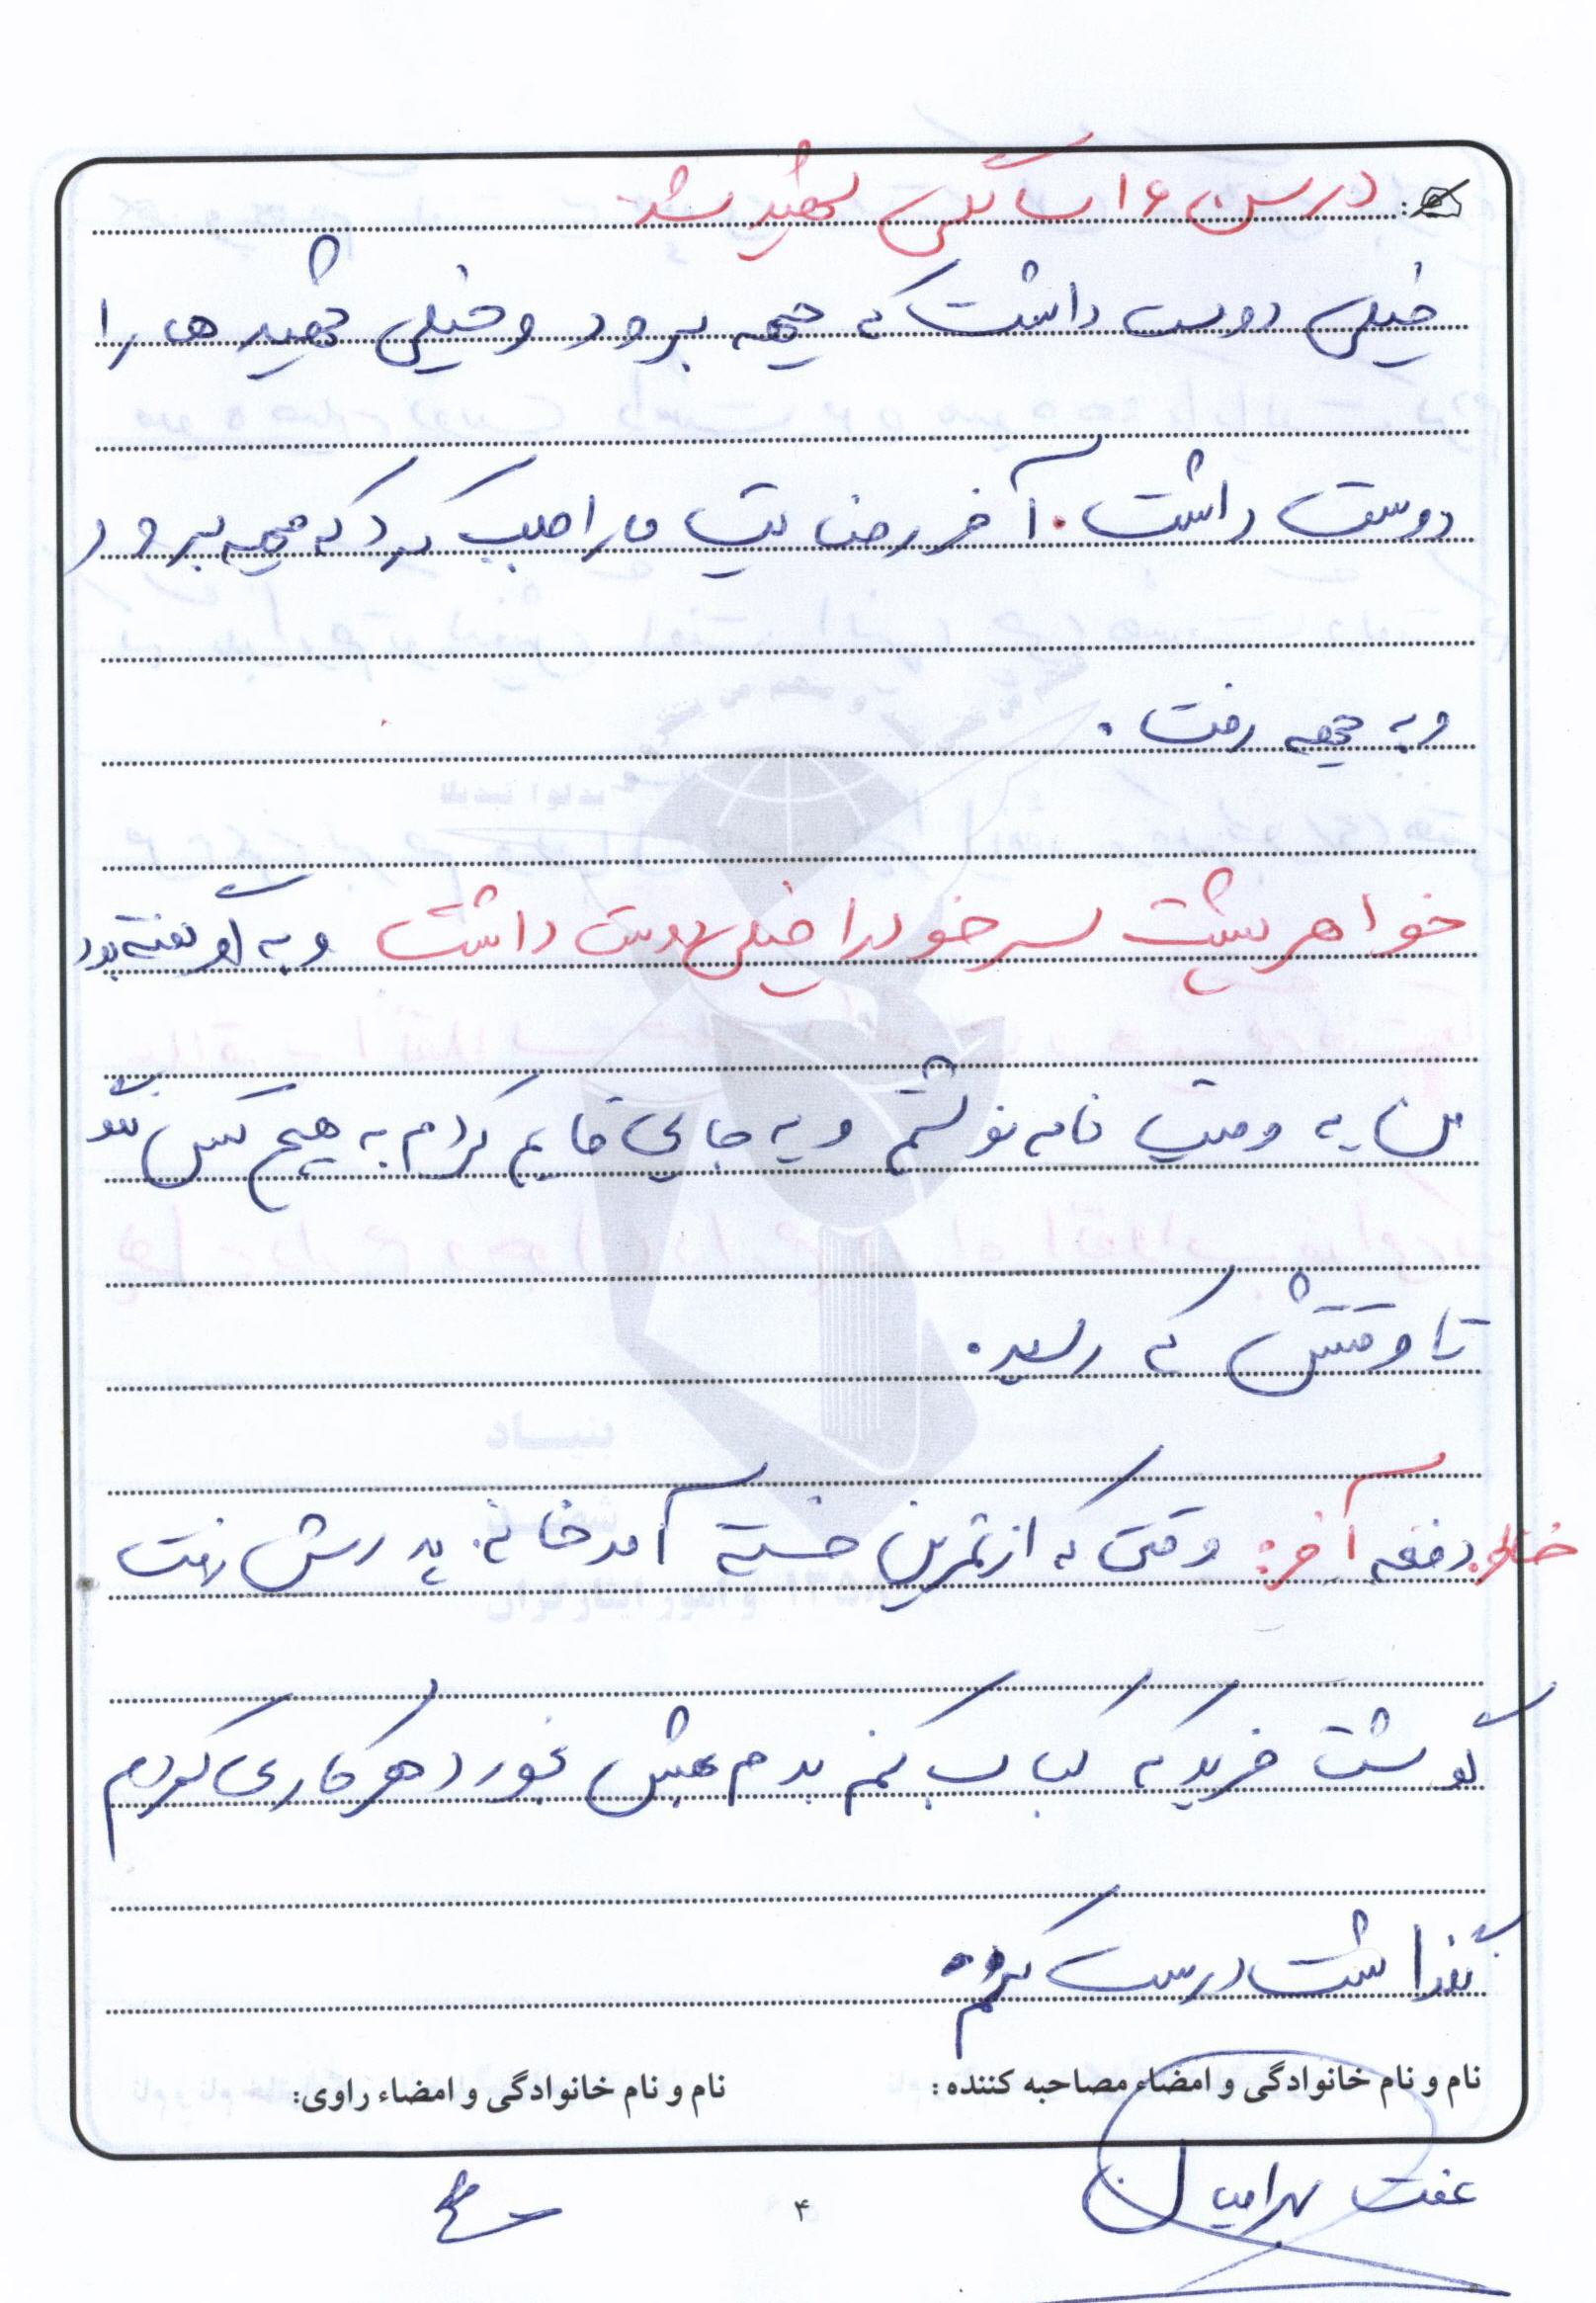 در سن ۱۶ سالگی شهید شد
خیلی دوست داشت که جبهه برود و خیلی شهید ها را
دوست داشت. آخر رضایت ما را جلب کرد که جبهه برود
و به جبهه رفت.
خواهر پشت سر خود را خیلی دوست داشت و به او گفته بود
من یه وصیت نامه نوشتم و یه جایی قایم کردم به هیچ کس نگو
تا وقتش که رسید.
دفعه آخر: وقتی که از تمرین خسته آمد خانه. پدرش رفت
گوشت خرید که کباب کنم بدم بهش بخورد هر کاری کردم
نگذاشت درست کنم
نام و نام خانوادگی و امضاء مصاحبه کننده: نام و نام خانوادگی و امضاء راوی:
عفت
۴